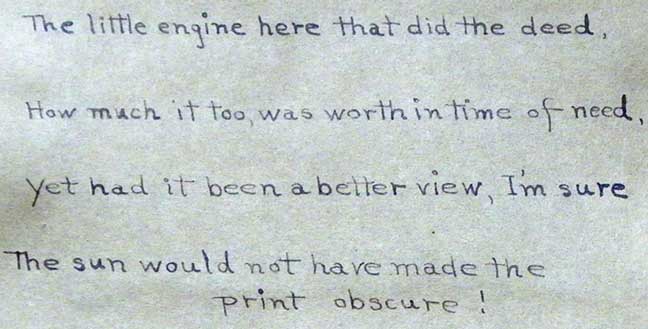 The little engine here that did the deed,
How much it too, was worth in time of need,
Yet had it been a better view, I'm sure
The sun would not have made the
print obscure!